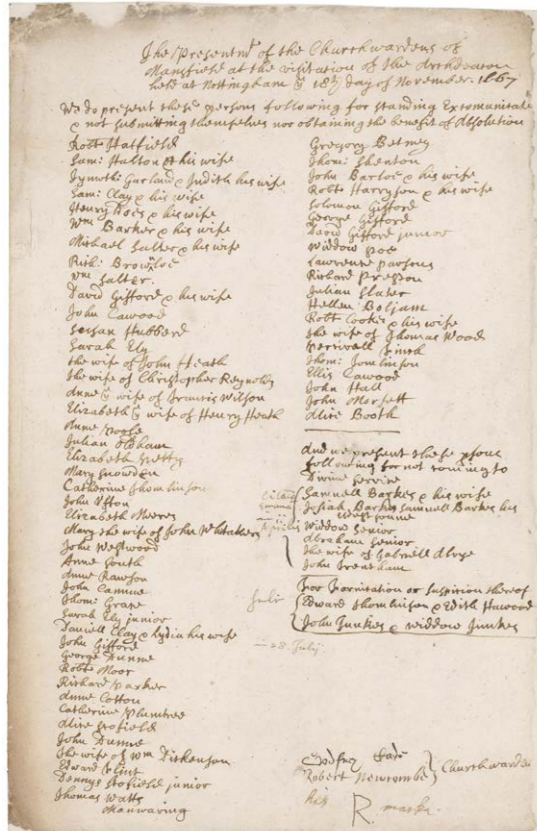 The Presentmt of the Churchwardens of
Mansfield at the visitation of the Archdeacon
held at Nottingham ye 18th day of November. 1667
We do present these persons following for standing Excomunicate
& not submitting themselves nor obtaining the benefit of Absolution
Robt Hatfield
Sam: Halton & his wife
Tymoth: Garland & Judith his wife
Sam: Clay & his wife
Henry Roes & his wife
Wm Barker & his wife
Michael Salter & his wife
Rich: Brownloe
Wm Salter.
David Gifford & his wife
John Cawood
Susan Hubberd
Sarah Ely
the wife of John Heath
the wife of Christopher Reynolds
Anne ye wife of Francis Wilson
Elizabeth ye wife of Henry Heath
Anne
Julian Oldham
Elizabeth
Mary Snowden
Catherine Thomlinson
John Ufton
Elizabeth Meeres
Mary the wife of John Whitaker
John Westwood
Anne South
Anne Rawson
John Camme
Thom: Grape
Sarah Ely junior
Daniell Clay & Lydia his wife
John Gifford
George Dunne
Robt Moor
Richard Parker
Anne Cotton
Catherine Plumtree
Alice Scofield
John Dunne
the wife of Wm Dickenson
Edward Flint
Dennys Scofield junior
Thomas Watts
Manwaring
Gregory Betney
Thom: Shenton
John Barloe & his wife
Robt Harryson & his wife
Solomon Gifford
George Gifford
David Gifford junior
Widdow Poe
Lawrence Parsons
Richard Presson
Julian Slater
Hellen Boljam
Robt Cooke & his wife
the wife of Thomas Wood
Smith
Thom: Tomlinson
Ellis Cawood
John Hall
John Morfett
Alice Booth
And we present these psons
following for not coming to
Divine Service
Samuell Barkes & his wife
Josiah Barkes Samuell Barkes his
Widdow Senior
Abraham Senior
the wife of Gabriell
John Trentham
For Fornication or suspicion thereof
Edward Thomlinson & Edith Hawood
July
John Junkes & Widdow Junkes
28. July
Godfrey
Robert Newcombe Churchwarden
his R. marke.